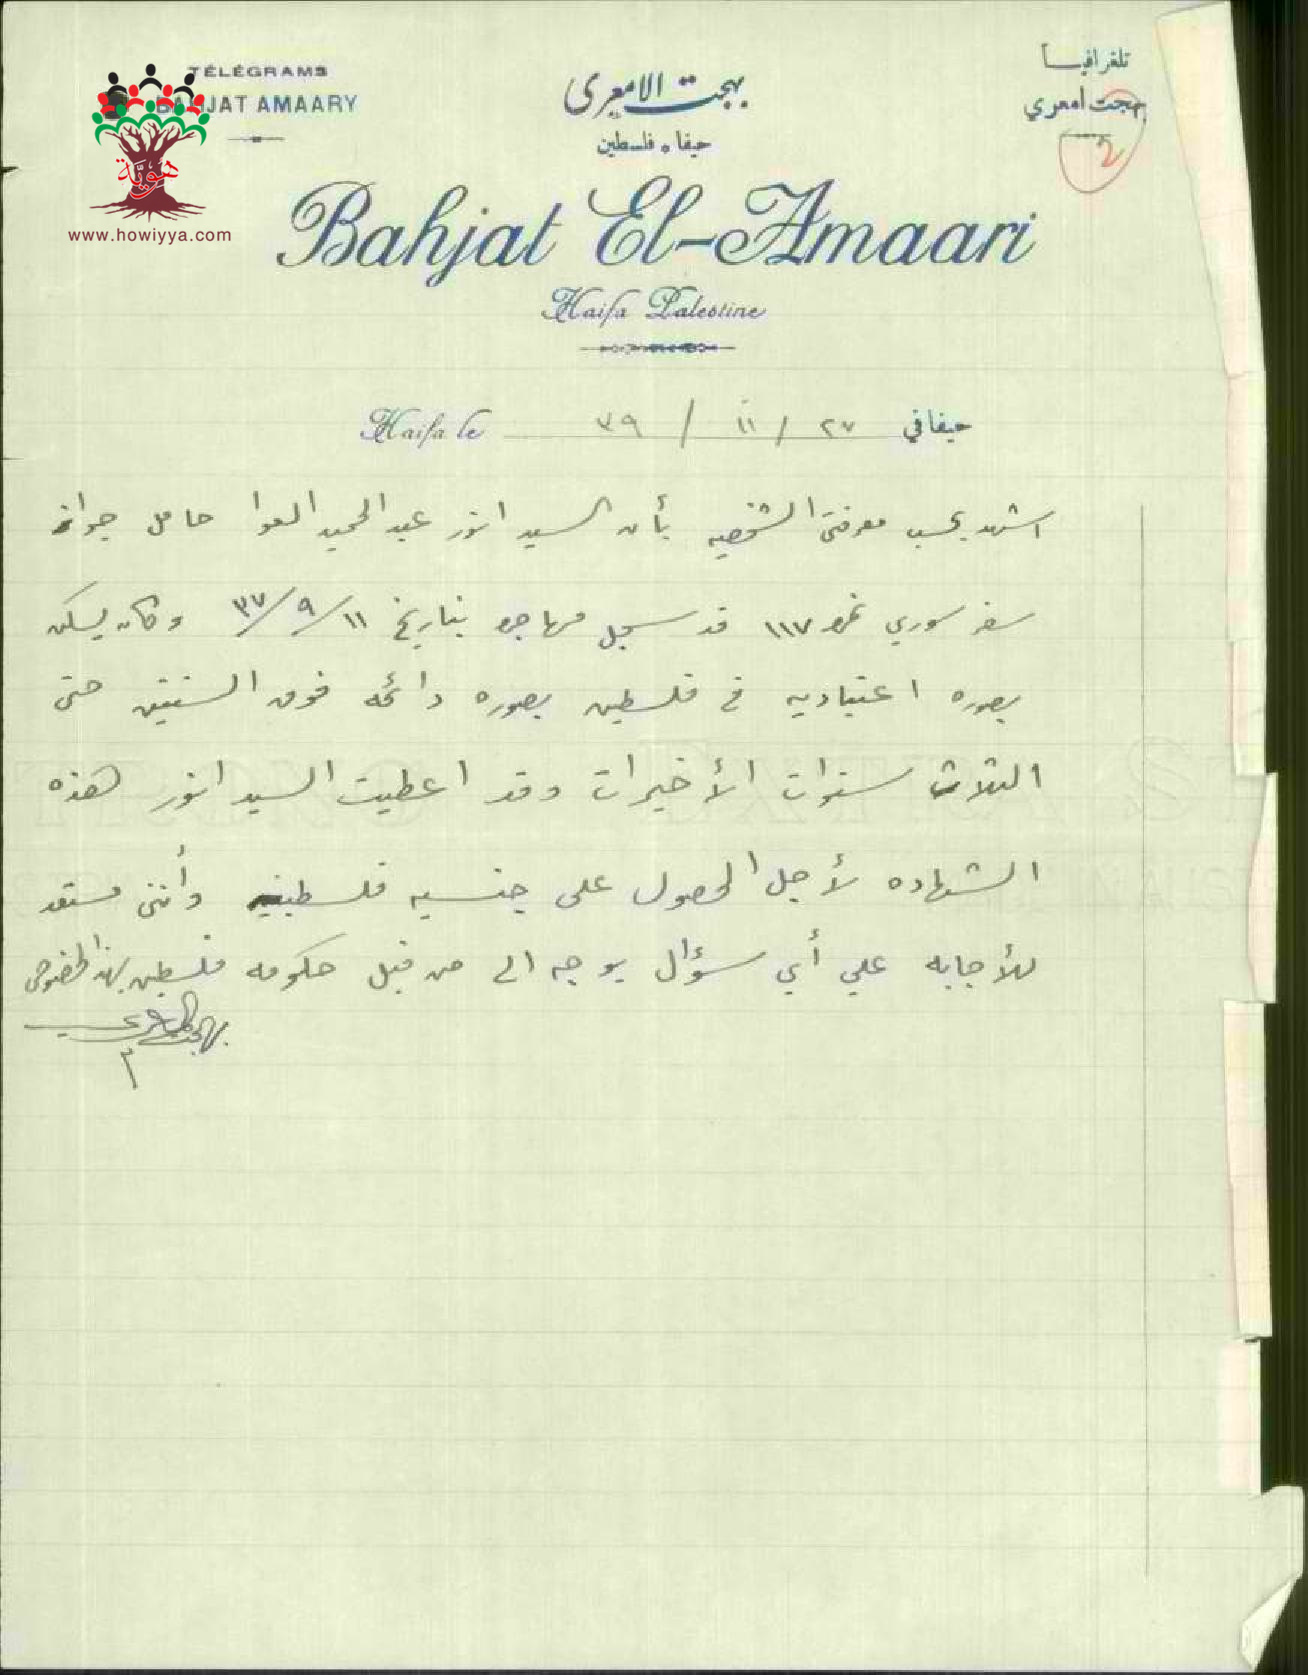 TÉLÉGRAMS
BAHJAT AMAARY
بهجت الامعري
حيفا ٠ فلسطين
تلغرافيا
بهجت امعري
2
هوية
www.howiyya.com
Bahjat El-Amaari
Haifa Palestine
Haifa le ٣٩ / ١١ / ٢٧ حيفا في
اشهد بحسب معرفتي الشخصيه بأن السيد انور عبد الحميد العوا حامل جواز
سفر سوري نمره ١١٧ قد سجل مهاجر بتاريخ ١١/٩/٣٧ وكان يسكن
بصوره اعتياديه في فلسطين بصوره دائمه فوق السنتين حتى
الثلاث سنوات الأخيرات وقد اعطيت السيد انور هذه
الشهاده لأجل الحصول على جنسيه فلسطينيه وأنني مستعد
للأجابه علي أي سؤال يوجه الي من قبل حكومه فلسطين بهذا الخصوص